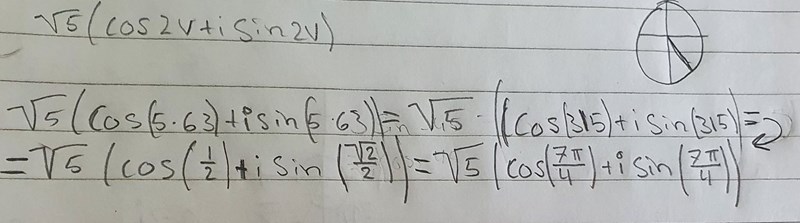 √5(cos2v+i sin2v)
√5(cos(5·63)+i sin(5·63))= √5·((cos(315)+i sin(315)=
=√5(cos(1/2)+i sin(√2/2))=√5(cos(7π/4)+i sin(7π/4))